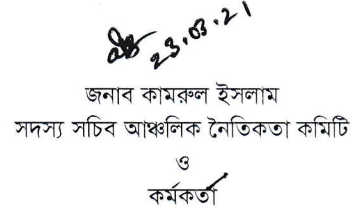 23.03.21
জনাব কামরুল ইসলাম
সদস্য সচিব আঞ্চলিক নৈতিকতা কমিটি
ও
কর্মকর্তা